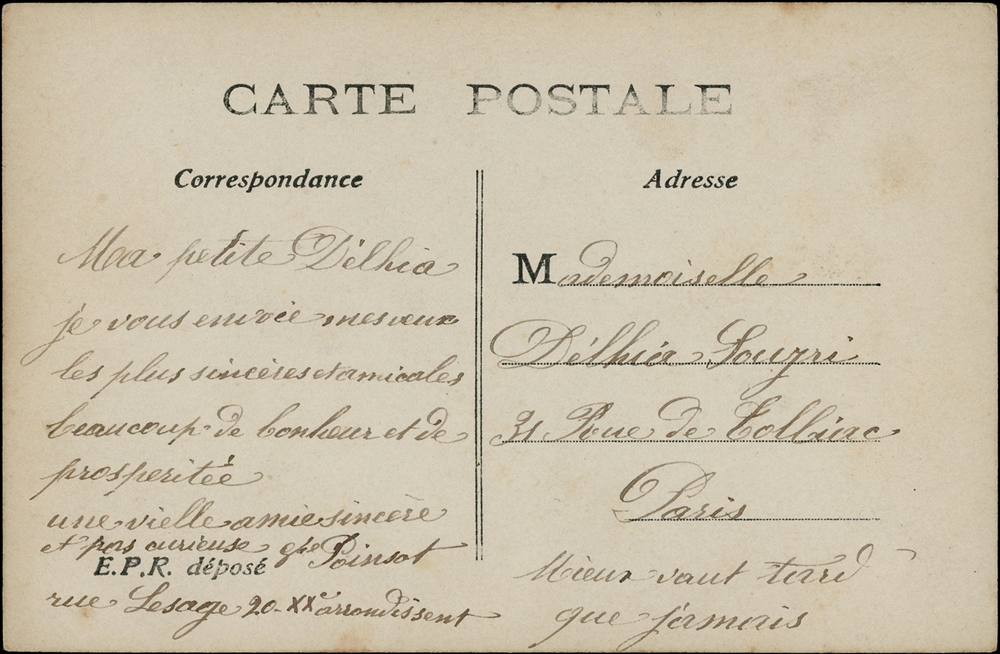 CARTE POSTALE
Correspondance
Ma petite Délhia
je vous envoie mes veux
les plus sincères et amicales
beaucoup de bonheur et de
prosperitée
une vielle amie sincère
et pas curieuse Poinsot
E.P.R. déposé
rue Lesage 20 - XXe arrondissent
Adresse
Mademoiselle
Délhia
31 Rue de Tolbiac
Paris
Mieux vaut tard
que jamais